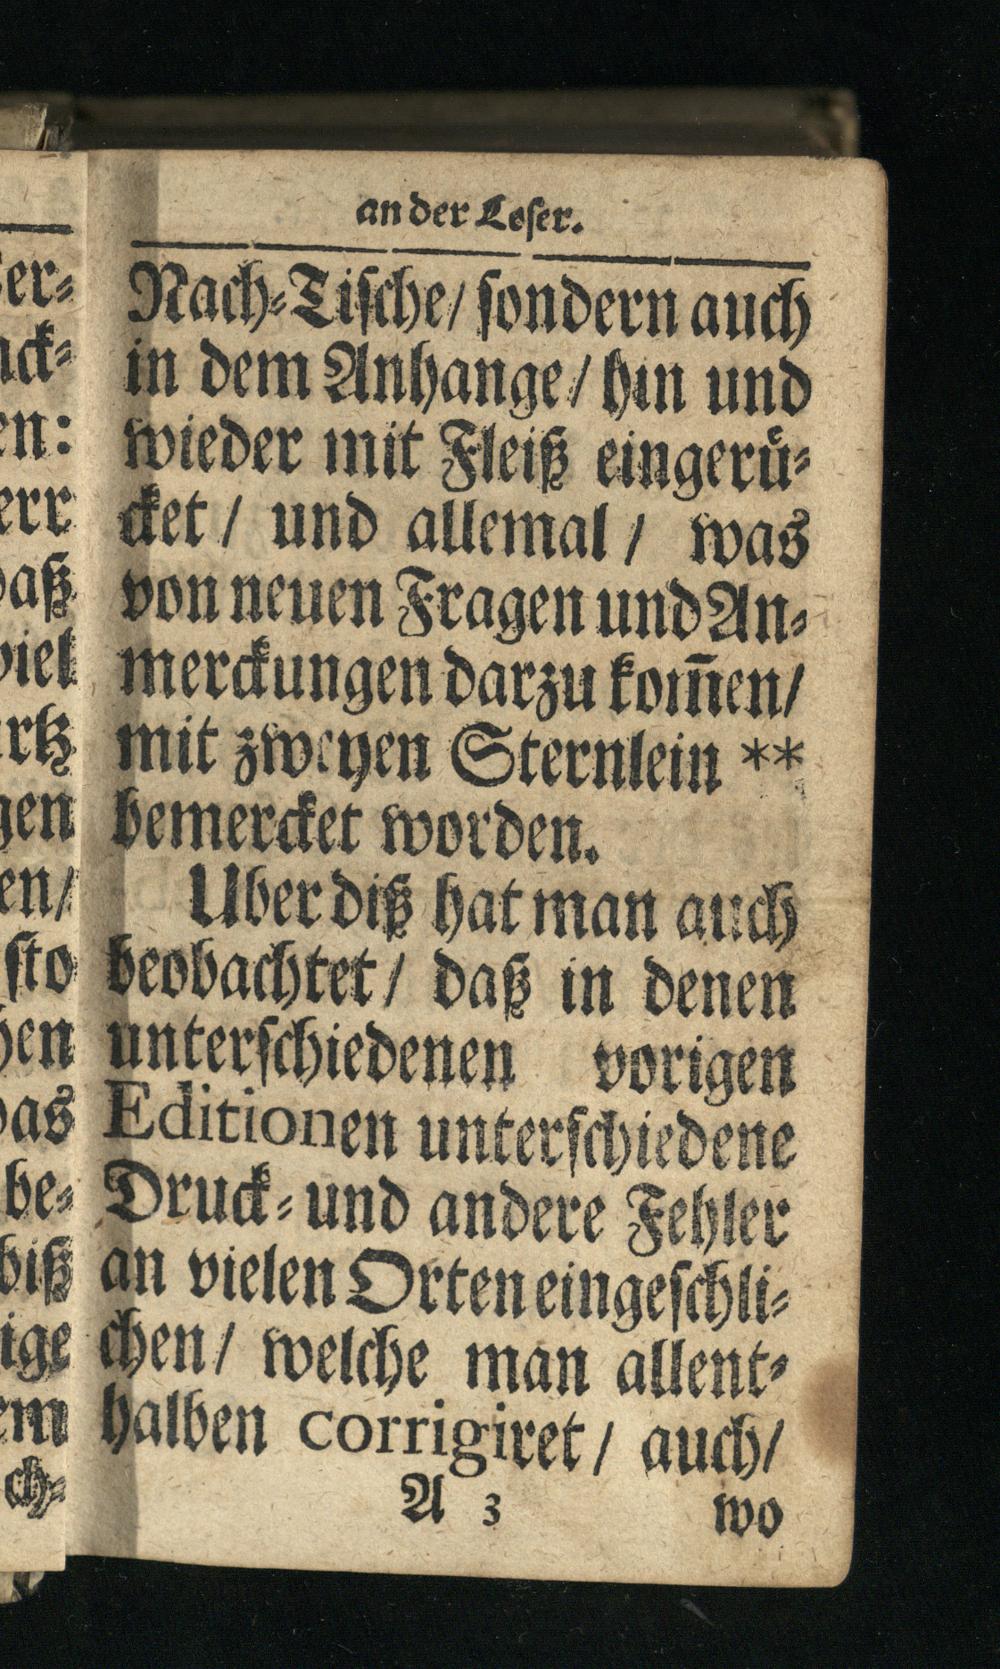 an der Leser.
Nach⸗Tische/ sondern auch
in dem Anhange/ hin und
wieder mit Fleiß eingerü⸗
cket/ und allemal/ was
von neuen Fragen und An⸗
merckungen darzu kom̄en/
mit zweyen Sternlein **
bemercket worden.
Uber diß hat man auch
beobachtet/ daß in denen
unterschiedenen vorigen
Editionen unterschiedene
Druck⸗ und andere Fehler
an vielen Orten eingeschli⸗
chen/ welche man allent⸗
halben corrigiret/ auch/
A 3 wo